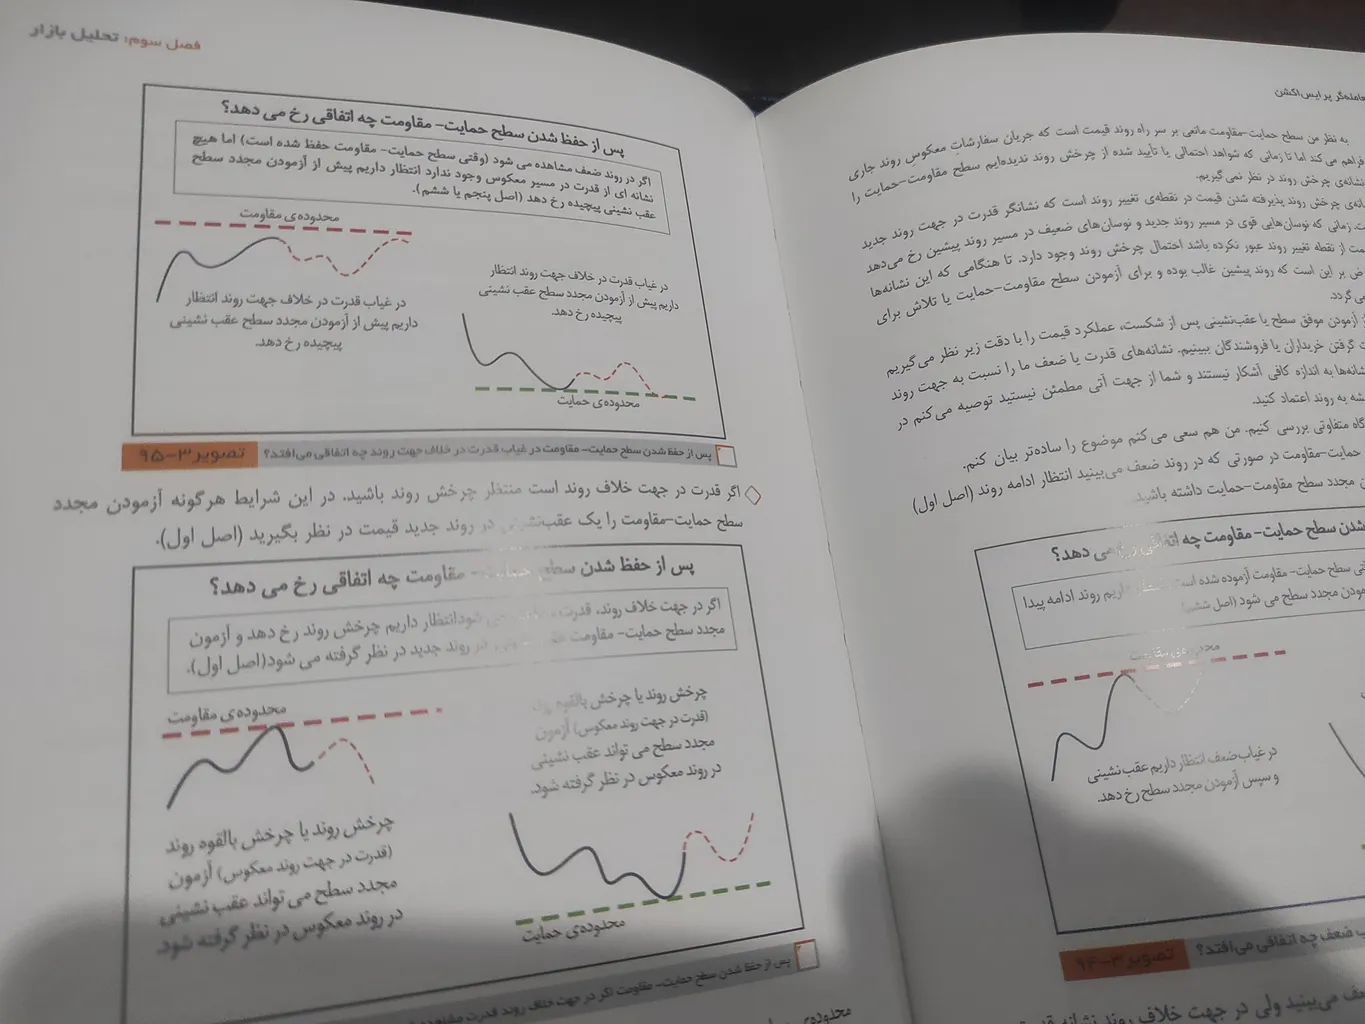 عامله‌گر پرایس‌اکشن
به نظر من سطح حمایت-مقاومت مانعی بر سر راه روند قیمت است که جریان سفارشات معکوس روند جاری
فراهم می کند اما تا زمانی که شواهد احتمالی یا تأیید شده از چرخش روند ندیده‌ایم سطح مقاومت-حمایت را
نشانه‌ی چرخش روند در نظر نمی گیریم.
انه‌ی چرخش روند پذیرفته شدن قیمت در نقطه‌ی تغییر روند است که نشانگر قدرت در جهت روند جدید
ت. زمانی که نوسان‌هایی قوی در مسیر روند جدید و نوسان‌های ضعیف در مسیر روند پیشین رخ می‌دهد
مت از نقطه تغییر روند عبور نکرده باشد احتمال چرخش روند وجود دارد. تا هنگامی که این نشانه‌ها
ض بر این است که روند پیشین غالب بوده و برای آزمودن سطح مقاومت-حمایت یا تلاش برای
ی گردد.
ز آزمودن موفق سطح یا عقب‌نشینی پس از شکست، عملکرد قیمت را با دقت زیر نظر می‌گیریم
ت گرفتن خریداران یا فروشندگان ببینیم. نشانه‌های قدرت یا ضعف ما را نسبت به جهت روند
شانه‌ها به اندازه کافی آشکار نیستند و شما از جهت آتی مطمئن نیستید توصیه می‌کنم در
شه به روند اعتماد کنید.
گاه متفاوتی بررسی کنیم. من هم سعی می‌کنم موضوع را ساده‌تر بیان کنم.
حمایت-مقاومت در صورتی که در روند ضعف می‌بینید انتظار ادامه روند (اصل اول)
ن مجدد سطح مقاومت-حمایت داشته باشید.
شدن سطح حمایت- مقاومت چه اتفاقی رخ می دهد؟
تی سطح حمایت- مقاومت آزموده شده است انتظار داریم روند ادامه پیدا
مودن مجدد سطح می شود (اصل ششم)
محدوده‌ی مقاومت
در غیاب ضعف انتظار داریم عقب نشینی
و سپس آزمودن مجدد سطح رخ دهد.
ب ضعف چه اتفاقی می‌افتد؟ تصویر ۳-۹۴
عف می‌بینید ولی در جهت خلاف روند نشانه
فصل سوم: تحلیل بازار
پس از حفظ شدن سطح حمایت- مقاومت چه اتفاقی رخ می دهد؟
اگر در روند ضعف مشاهده می شود (وقتی سطح حمایت- مقاومت حفظ شده است) اما هیچ
نشانه ای از قدرت در مسیر معکوس وجود ندارد انتظار داریم پیش از آزمودن مجدد سطح
عقب نشینی پیچیده رخ دهد (اصل پنجم یا ششم).
محدوده‌ی مقاومت
در غیاب قدرت در خلاف جهت روند انتظار
داریم پیش از آزمودن مجدد سطح عقب نشینی
پیچیده رخ دهد.
در غیاب قدرت در خلاف جهت روند انتظار
داریم پیش از آزمودن مجدد سطح عقب نشینی
پیچیده رخ دهد.
محدوده‌ی حمایت
پس از حفظ شدن سطح حمایت- مقاومت در غیاب قدرت در خلاف جهت روند چه اتفاقی می‌افتد؟ تصویر ۳-۹۵
اگر قدرت در جهت خلاف روند است منتظر چرخش روند باشید. در این شرایط هرگونه آزمودن مجدد
سطح حمایت-مقاومت را یک عقب‌نشینی در روند جدید قیمت در نظر بگیرید (اصل اول).
پس از حفظ شدن سطح حمایت- مقاومت چه اتفاقی رخ می دهد؟
اگر در جهت خلاف روند، قدرت می شودانتظار داریم چرخش روند رخ دهد و آزمون
مجدد سطح حمایت- مقاومت در روند جدید در نظر گرفته می شود(اصل اول).
محدوده‌ی مقاومت
چرخش روند یا چرخش بالقوه
(قدرت در جهت روند معکوس) آزمون
مجدد سطح می تواند عقب نشینی
در روند معکوس در نظر گرفته شود.
چرخش روند یا چرخش بالقوه روند
(قدرت در جهت روند معکوس) آزمون
مجدد سطح می تواند عقب نشینی
در روند معکوس در نظر گرفته شود.
محدوده‌ی حمایت
پس از حفظ شدن سطح حمایت- مقاومت اگر در جهت خلاف روند قدرت
محدوده‌ی